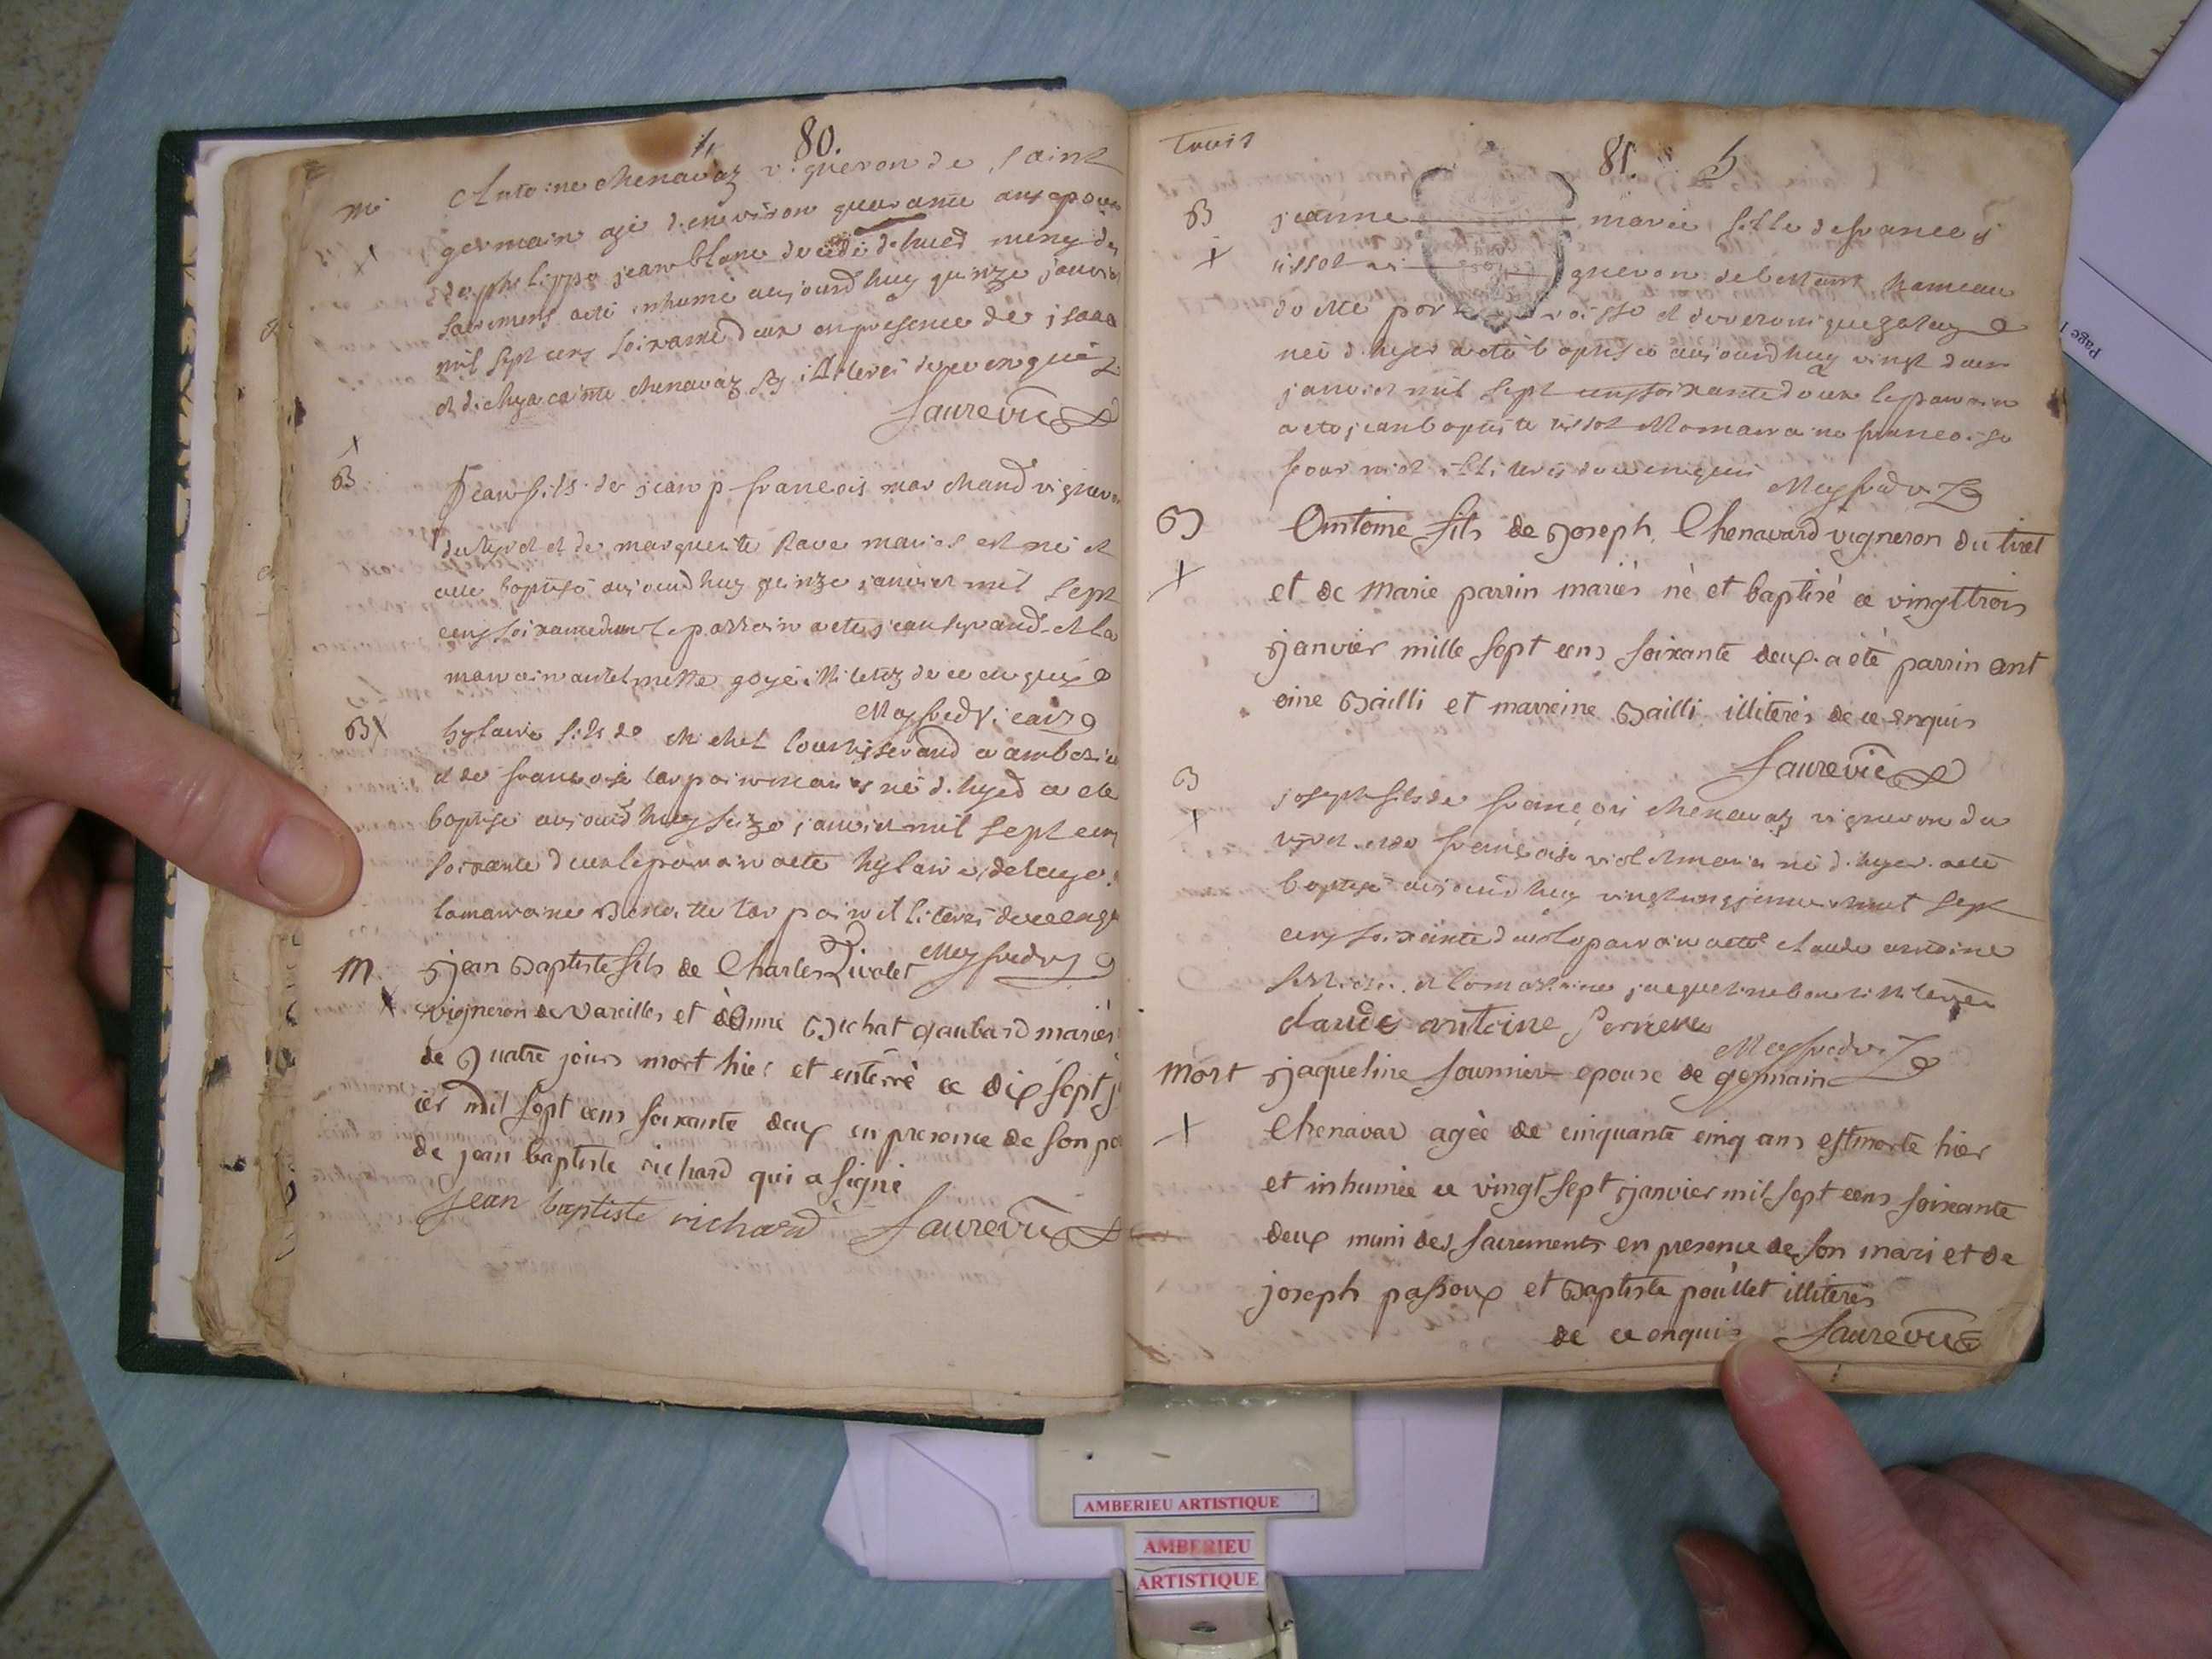 80.
mi
Antoine chenavaz vigneron de saint
germain agé denviron quarante ans epoux
de philippa jeanblanc decedé d'hier muny des
sacremens a eté inhumé aujourd'huy quinze janvier
mil sept cens soixante deux en presence de
et d'hyacainte chenavaz illiterés de ce enquis
Faurevic
B
Jean fils de jean p francois marchand vigneron
du tiret et de marguerite Rave mariés est né et
eté baptisé aujourdhuy quinze janvier mil sept
cens soixante deux le parrain a eté jean et la
marraine antelmette goyé illiterez de ce enquis
Meysfred vicair
B
hylaire fils de michel louis a amberieu
et de francoise tarpoin mariés né d'hyer a eté
baptisé aujourdhuy seize janvier mil sept cens
soixante deux le parrain a eté hylaire delaye
la marraine Benoitte tarpoin illiterés de ce enquis
Meysfred v
M.
jean Baptiste fils de Charles Livolet
vigneron de Vareilles et danne Bichat gaubard mariés
de Quatre jours mort hier et enterré ce dix sept j
ier mil sept cens soixante deux en presence de son pe
de jean baptiste richard qui a signé
jean baptiste richard Faurevic
Trois
81. 5
B
jeanne marie fille de francois
tissot vi gneron de hameau
de cette par roisse et de veronique
née d'hyer a eté baptisée aujourdhuy vingt deux
janvier mil sept cens soixante deux le parrain
a eté jean baptiste tissot et la marraine francoise
illiterés de ce enquis Meysfred v
B
Antoine fils de Joseph Chenavard vigneron du tiret
et de Marie parrin mariés né et baptisé ce vingttrois
janvier mille sept cens soixante deux a été parrin ant
oine Bailli et marreine Bailli illiterés de ce enquis
Faurevic
B
joseph fils de françois chenavaz vigneron du
tyret et de françoise violet mariés né d'hyer a eté
baptisé aujourdhuy vingt janvier mil sept
cens soixante deux le parrain a eté claude antoine
et la marraine jacqueline illiterée
claude antoine
Meysfred v
Mort
Jaqueline fournier epouse de germain
Chenavar agée de cinquante cinq ans est morte hier
et inhumée ce vingt sept janvier mil sept cens soixante
deux muni des sacrements en presence de son mari et de
joseph passoux et Baptiste poullet illiterés
de ce enquis Faurevic
Page 1
AMBERIEU ARTISTIQUE
AMBERIEU
ARTISTIQUE